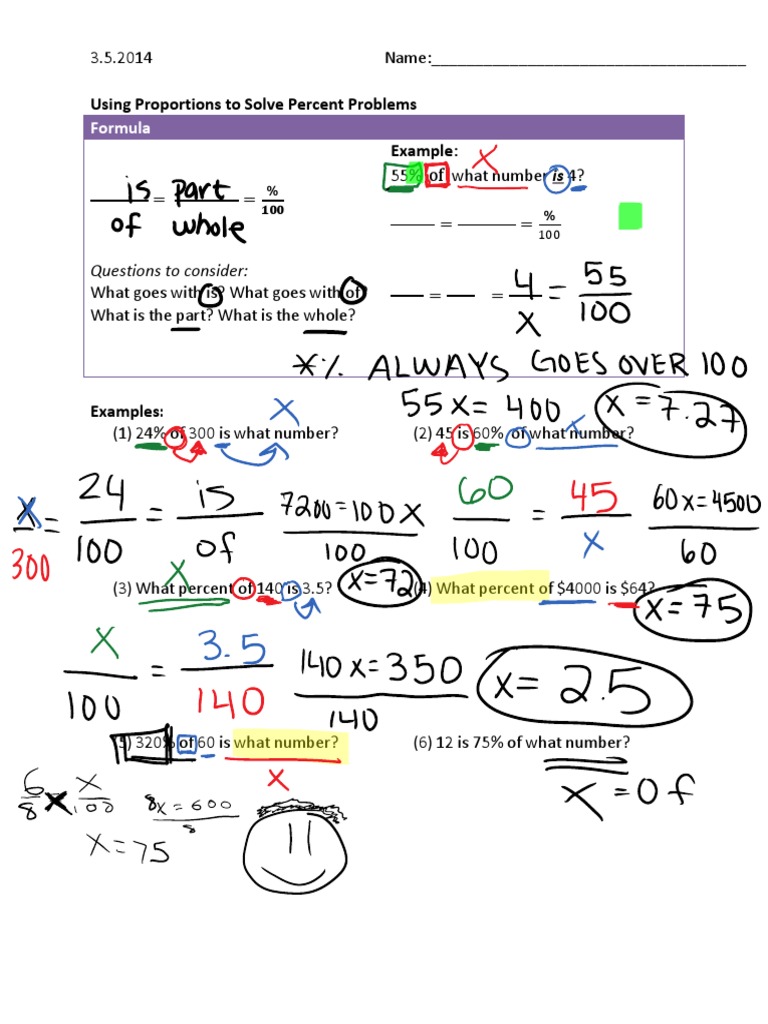 3.5.2014 Name:___________________________________
Using Proportions to Solve Percent Problems
Formula
is = part = %
of whole 100
Questions to consider:
What goes with is? What goes with of?
What is the part? What is the whole?
Example:
x
55% of what number is 4?
____ = ____ = %
100
___ = ___ = 4 = 55
x 100
*% ALWAYS GOES OVER 100
55x = 400 x = 7.27
Examples:
x
(1) 24% of 300 is what number?
x = 24 = is 7200 = 100x
300 100 of 100
x=72
x
(2) 45 is 60% of what number?
60 = 45 60x = 4500
100 x 60
x = 75
x
(3) What percent of 140 is 3.5?
x = 3.5 140x = 350
100 140 140
x = 2.5
(4) What percent of $4000 is $64?
(5) 320% of 60 is what number?
x
6 x x 8x = 600
8 100 8
x = 75
(6) 12 is 75% of what number?
x = of